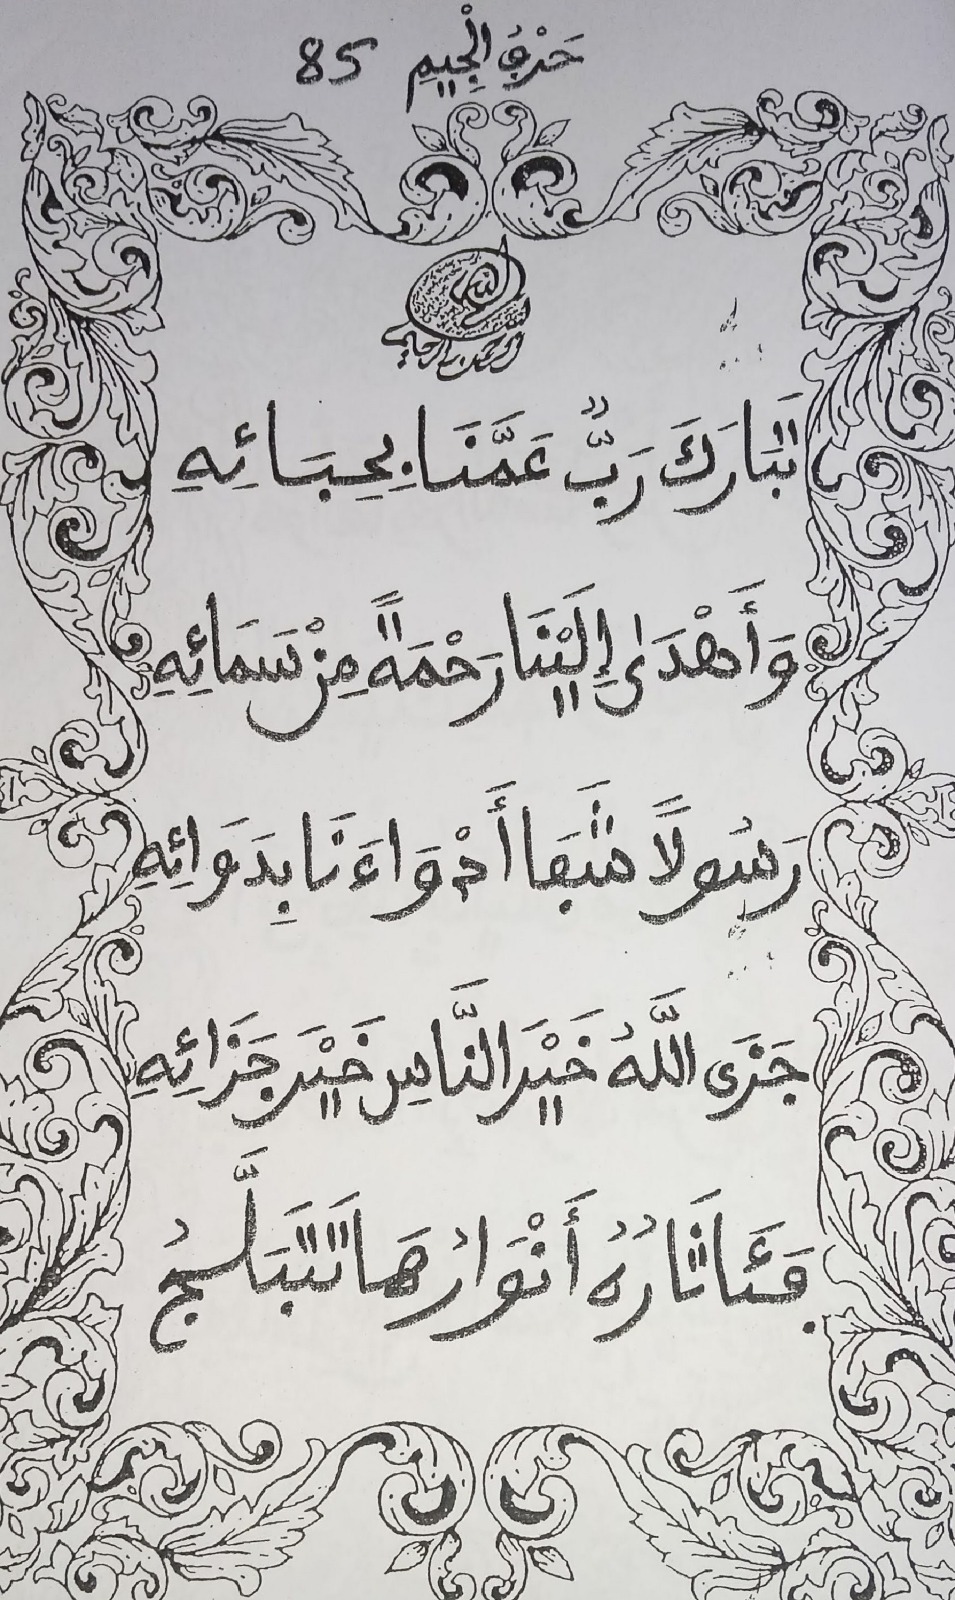 حَرْفُ الْجِيمِ 85
بسم الله الرحمن الرحيم
تَبَارَكَ رَبٌّ عَمَّنَا بِحِبَائِهِ
وَأَهْدَىٰ إِلَيْنَا رَحْمَةً مِنْ سَمَائِهِ
رَسُولًا شَفَا أَدْوَاءَنَا بِدَوَائِهِ
جَزَى اللَّهُ خَيْرَ النَّاسِ خَيْرَ جَزَائِهِ
فَئَاثَارُهُ أَنْوَارُهَا تَتَبَلَّجُ